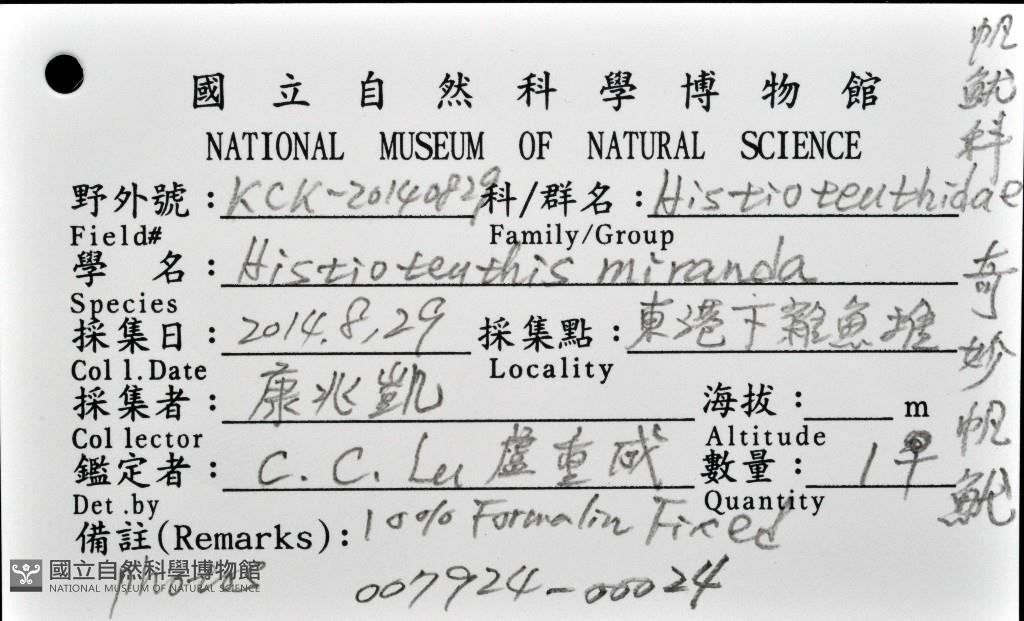 國立自然科學博物館
NATIONAL MUSEUM OF NATURAL SCIENCE
野外號：KCK-20140829 科/群名：Histioteuthidae
Field# Family/Group
學 名：Histioteuthis miranda
Species
採集日：2014.8.29 採集點：東港下雜魚堆
Coll.Date Locality
採集者：康兆凱 海拔： m
Collector Altitude
鑑定者：C. C. Lu 盧重成 數量：1♀
Det.by Quantity
備註(Remarks)：10% Formalin Fixed
007924-00024
帆魷科 奇妙帆魷
國立自然科學博物館
NATIONAL MUSEUM OF NATURAL SCIENCE